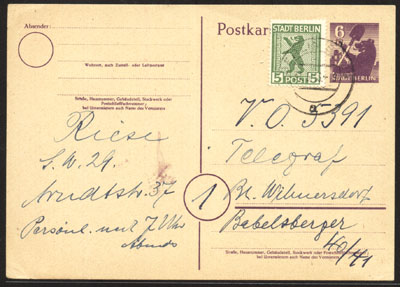 Absender:
Wohnort, auch Zustell- oder Leitpostamt
Straße, Hausnummer, Gebäudeteil, Stockwerk oder
Postschließfachnummer;
bei Untermietern auch Name des Vermieters
Riese
S.W. 29.
Arndtstr. 37
Persönl. nur 7 Uhr
Abends
Postkarte
STADT BERLIN
5 POST 5
6
STADT BERLIN
V.O. 5391
Telegraf
1 Bln. Wilmersdorf
Babelsberger
40/41
Straße, Hausnummer, Gebäudeteil, Stockwerk oder Postschließfachnummer;
bei Untermietern auch Name des Vermieters